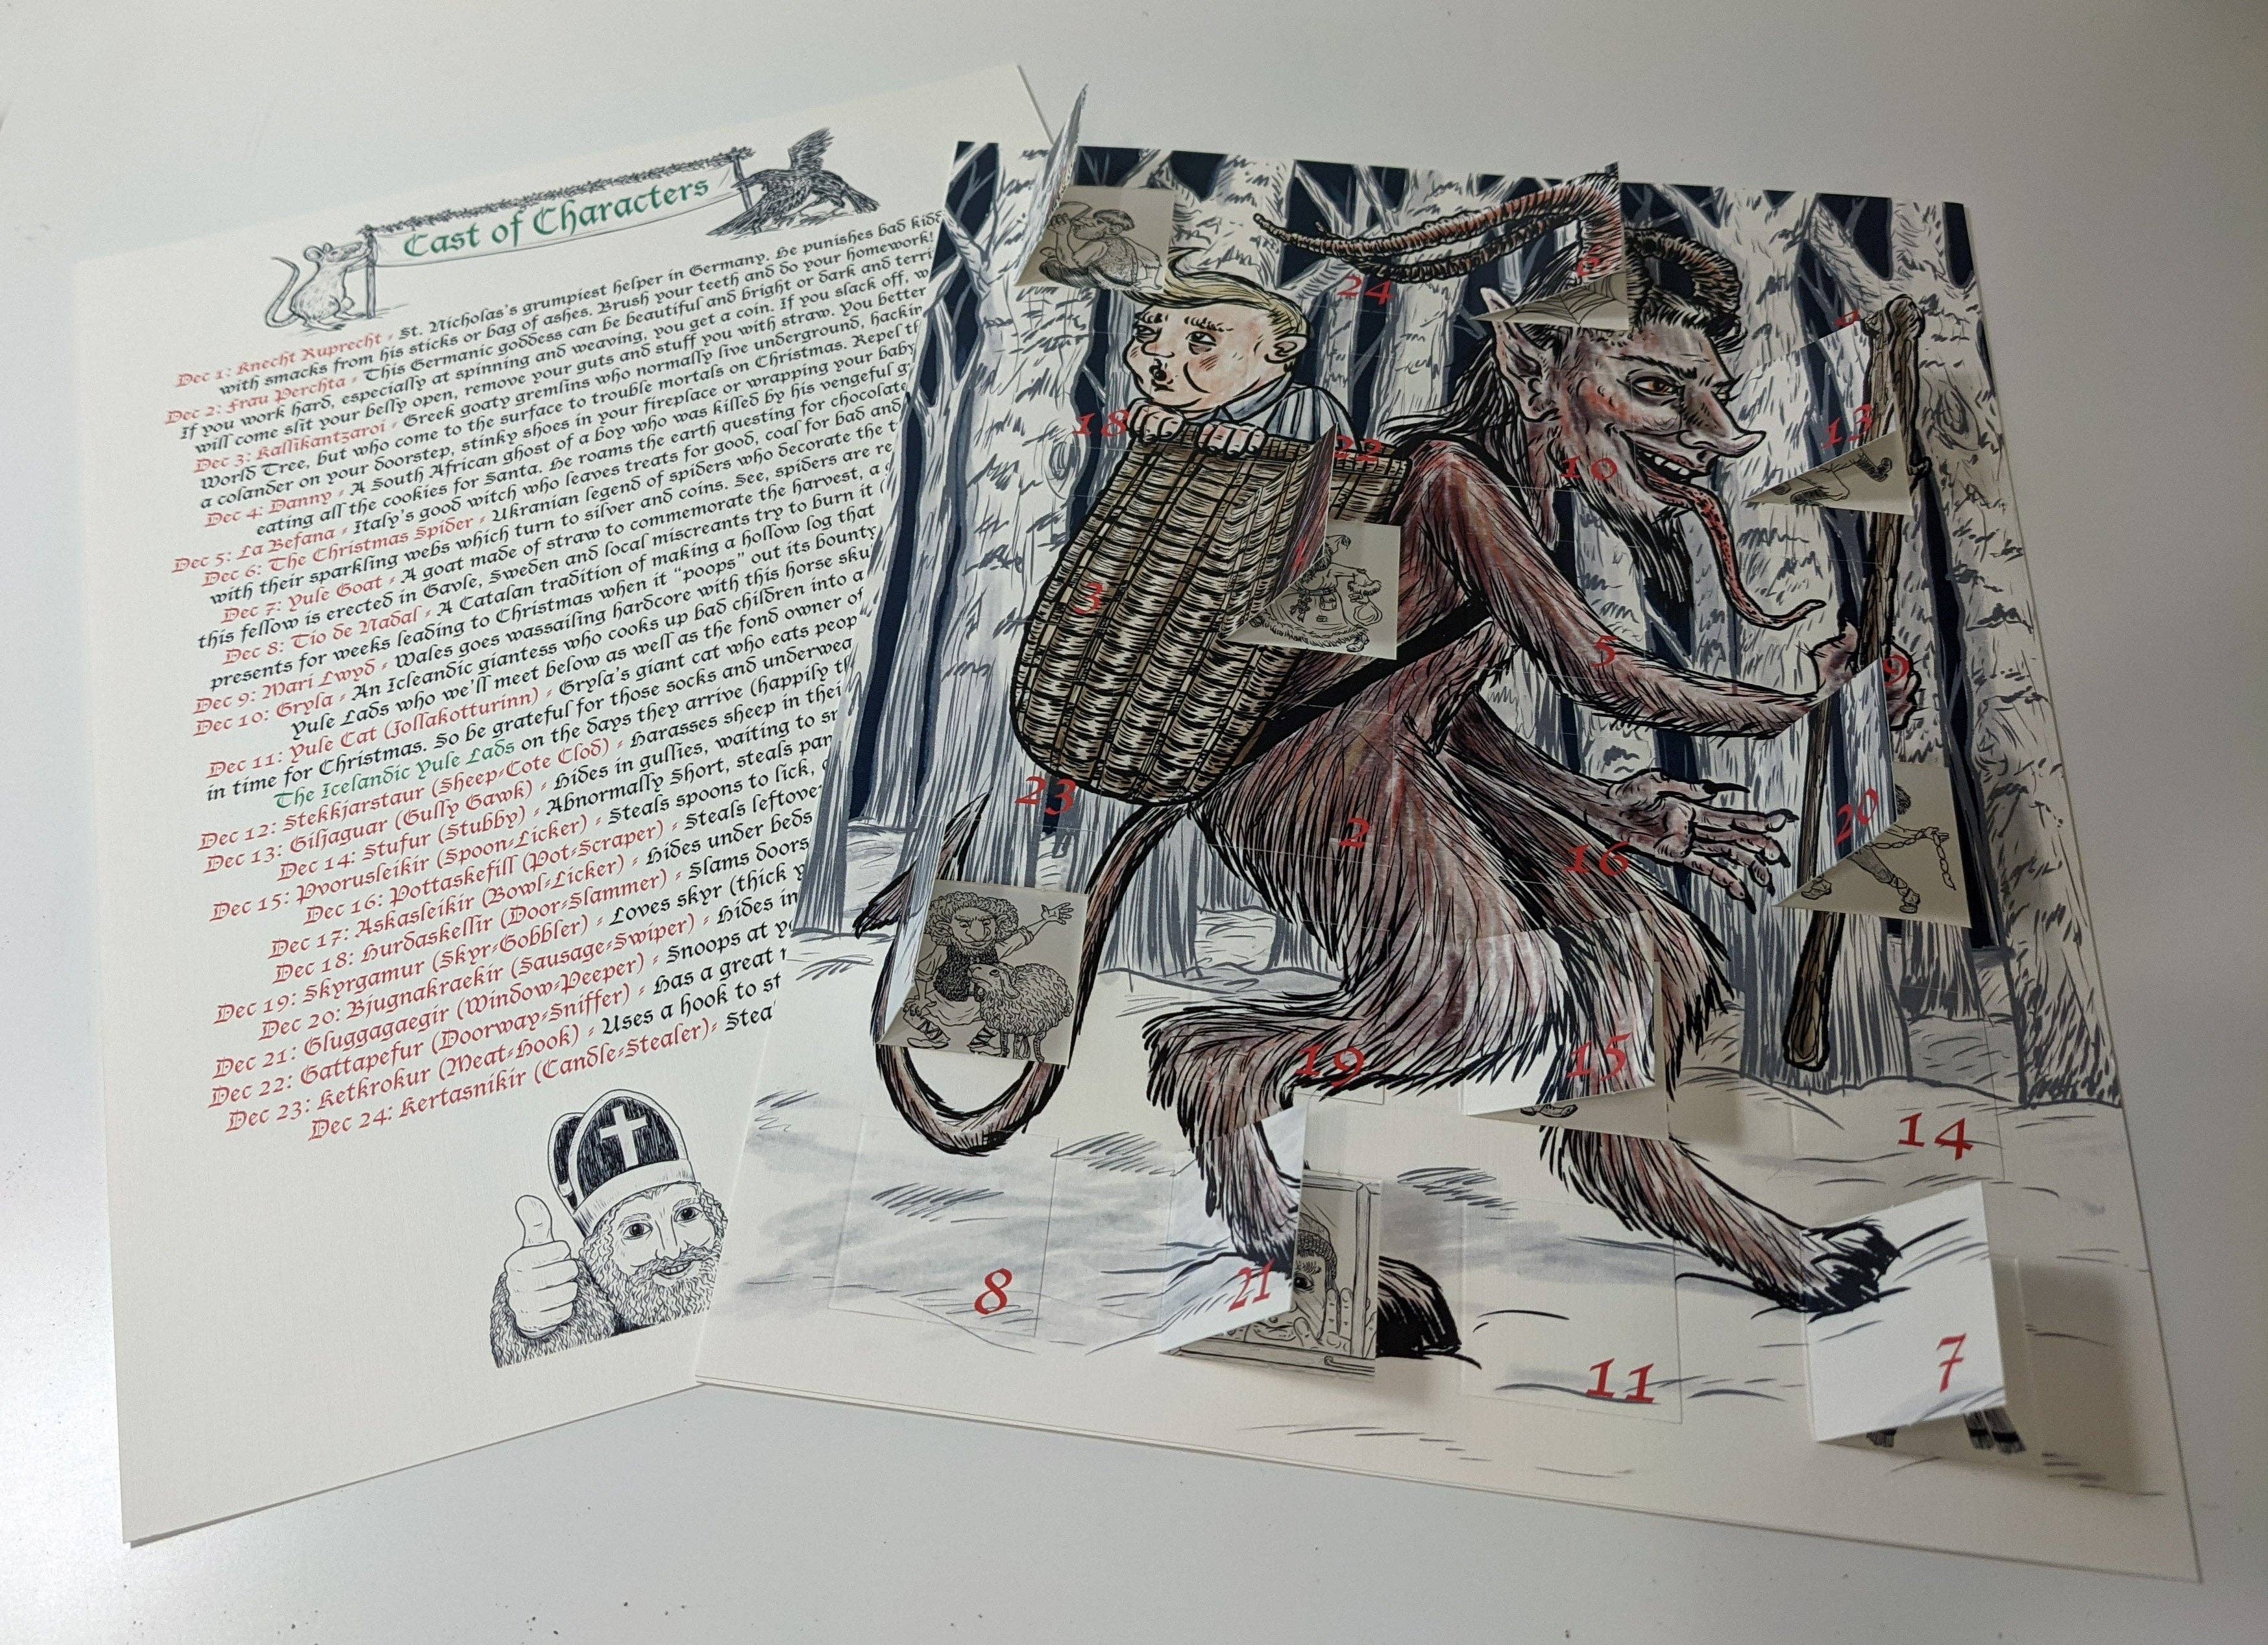 Cast of Characters
Dec 1: Knecht Ruprecht - St. Nicholas's grumpiest helper in Germany. He punishes bad kids
with smacks from his sticks or bag of ashes. Brush your teeth and do your homework!
Dec 2: Frau Perchta - This Germanic goddess can be beautiful and bright or dark and terri
If you work hard, especially at spinning and weaving, you get a coin. If you slack off,
will come slit your belly open, remove your guts and stuff you with straw. You better
Dec 3: Kallikantzaroi - Greek goaty gremlins who normally live underground, hackin
World Tree, but who come to the surface to trouble mortals on Christmas. Repel th
a colander on your doorstep, stinky shoes in your fireplace or wrapping your baby
Dec 4: Danny - A South African ghost of a boy who was killed by his vengeful g
eating all the cookies for Santa. He roams the earth questing for chocolate
Dec 5: La Befana - Italy's good witch who leaves treats for good, coal for bad and
Dec 6: The Christmas Spider - Ukranian legend of spiders who decorate the t
with their sparkling webs which turn to silver and coins. See, spiders are re
Dec 7: Yule Goat - A goat made of straw to commemorate the harvest, a
this fellow is erected in Gavle, Sweden and local miscreants try to burn it
Dec 8: Tio de Nadal - A Catalan tradition of making a hollow log that
presents for weeks leading to Christmas when it "poops" out its bounty
Dec 9: Mari Lwyd - Wales goes wassailing hardcore with this horse sku
Dec 10: Gryla - An Icleandic giantess who cooks up bad children into a
Yule Lads who we'll meet below as well as the fond owner of
Dec 11: Yule Cat (Jollakotturinn) - Gryla's giant cat who eats peop
in time for Christmas. So be grateful for those socks and underwea
The Icelandic Yule Lads on the days they arrive (happily t
Dec 12: Stekkjarstaur (Sheep-Cote Clod) - Harasses sheep in thei
Dec 13: Giljaguar (Gully Gawk) - Hides in gullies, waiting to
Dec 14: Stufur (Stubby) - Abnormally Short, steals pan
Dec 15: Pvorusleikir (Spoon-Licker) - Steals spoons to lick,
Dec 16: Pottaskefill (Pot-Scraper) - Steals leftove
Dec 17: Askasleikir (Bowl-Licker) - Hides under beds
Dec 18: Hurdaskellir (Door-Slammer) - Slams doors
Dec 19: Skyrgamur (Skyr-Gobbler) - Loves skyr (thick
Dec 20: Bjugnakraekir (Sausage-Swiper) - Hides in
Dec 21: Gluggagaegir (Window-Peeper) - Snoops at
Dec 22: Gattapefur (Doorway-Sniffer) - Has a great
Dec 23: Ketkrokur (Meat-Hook) - Uses a hook to st
Dec 24: Kertasnikir (Candle-Stealer)- Stea
24
6
18
22
13
10
3
5
9
23
2
20
16
19
15
14
8
21
11
7